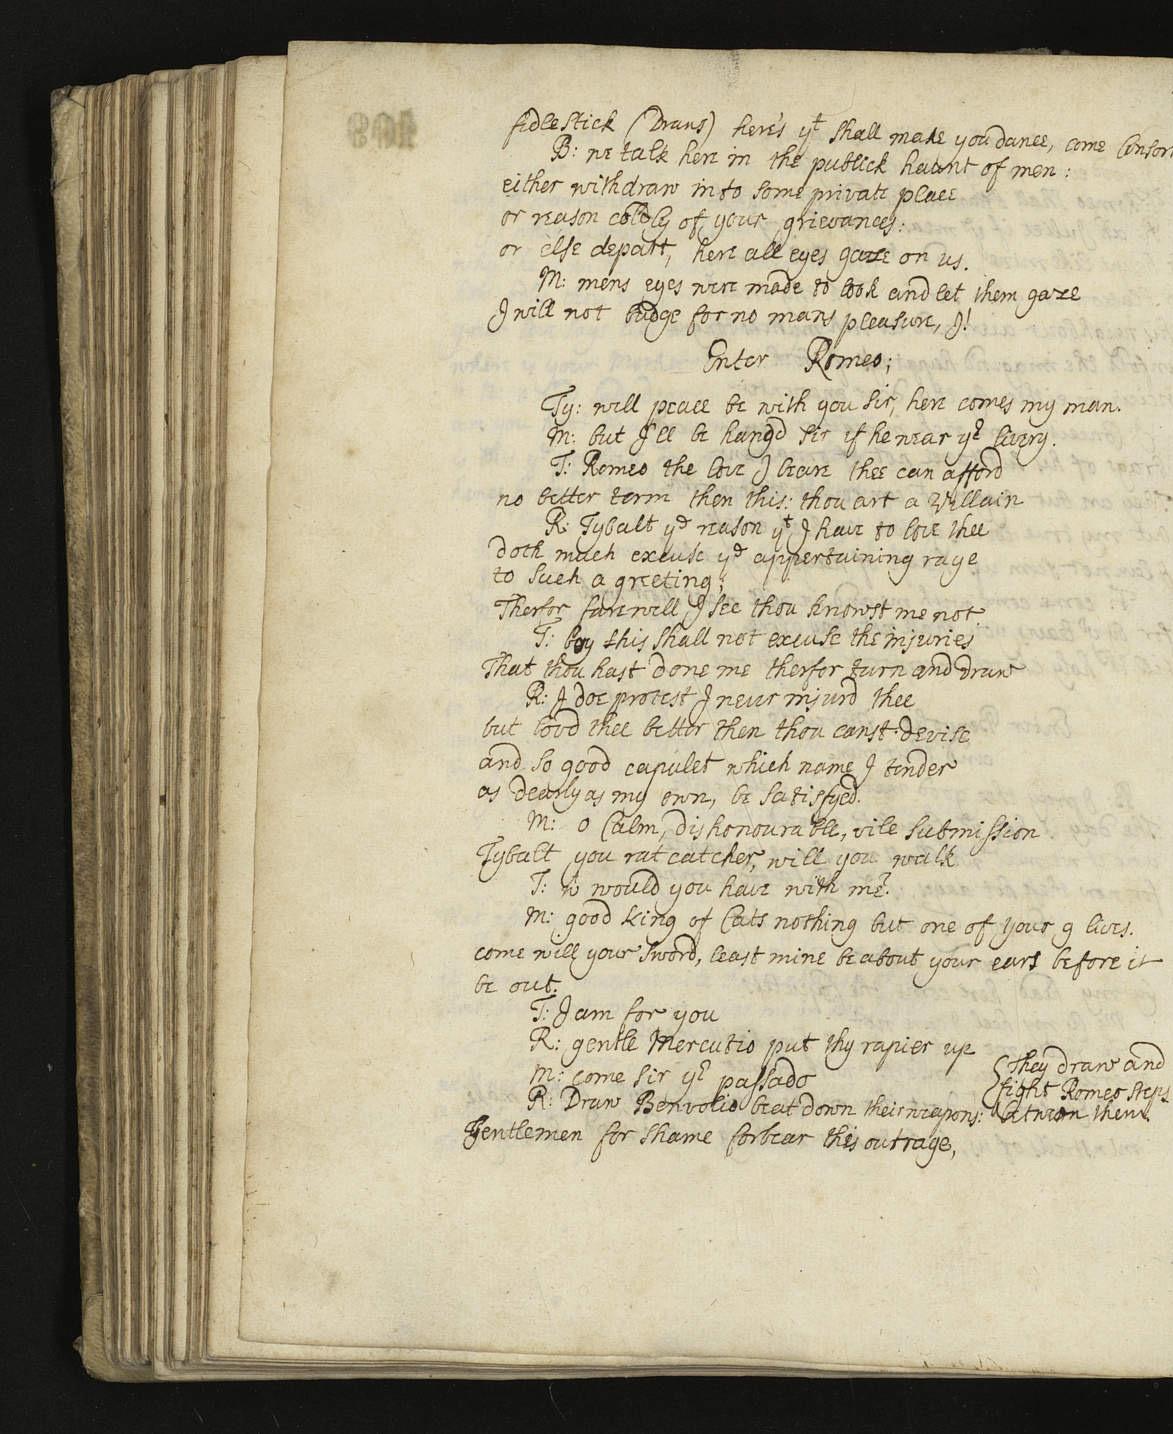 fidlestick (Draws) here's yt shall make you dance, come Consort
B: we talk here in the publick haunt of men:
either withdraw into some private place
or reason coldly of your grievances:
or else depart, here all eyes gaze on us.
M: mens eyes were made to look and let them gaze
I will not budge for no mans pleasure, I!
Enter Romeo;
Ty: well peace be with you sir, here comes my man.
M: but I'll be hangd sir if he wear yr livery.
T: Romeo the love I beare thee can afford
no better term then this: thou art a Villain
R: Tybalt ye reason yt I have to love thee
doth much excuse ye appertaining rage
to such a greeting;
Therfor farewell I see thou knowst me not.
T: boy this shall not excuse the injuries
That thou hast done me therfor turn and draw
R: I doe protest I never injurd thee
but lovd thee better then thou canst devise
and so good capulet which name I tender
as dearly as my own, be satisfyed.
M: o Calm, dishonourable, vile submission
Tybalt you ratcatcher, will you walk
T: w would you have with me?
M: good king of Cats nothing but one of your 9 lives.
come will your sword, least mine be about your ears before it
be out.
T: I am for you
R: gentle Mercutio put thy rapier up
M: come sir yr passado
R: Draw Benvolio beat down their weapons:
{they draw and
fight Romeo steps
between them.
Gentlemen for shame forbear this outrage,